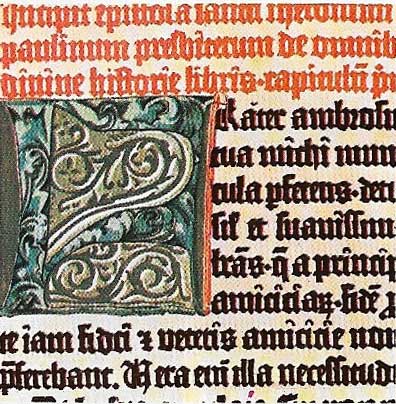 Incipit epistola sancti iheronimi
paulinum presbiterum de omnib
divine historie libris·capitulū p
Rater ambrosi
tua michi mun
cula ꝓferens·detu
sil' et suavissim
trās·q̄ a princip
amiciciaꝝ·fidē
te iam fidei ⁊ veteris amicicie no
p̄ferebant. Vera enī illa necessitud